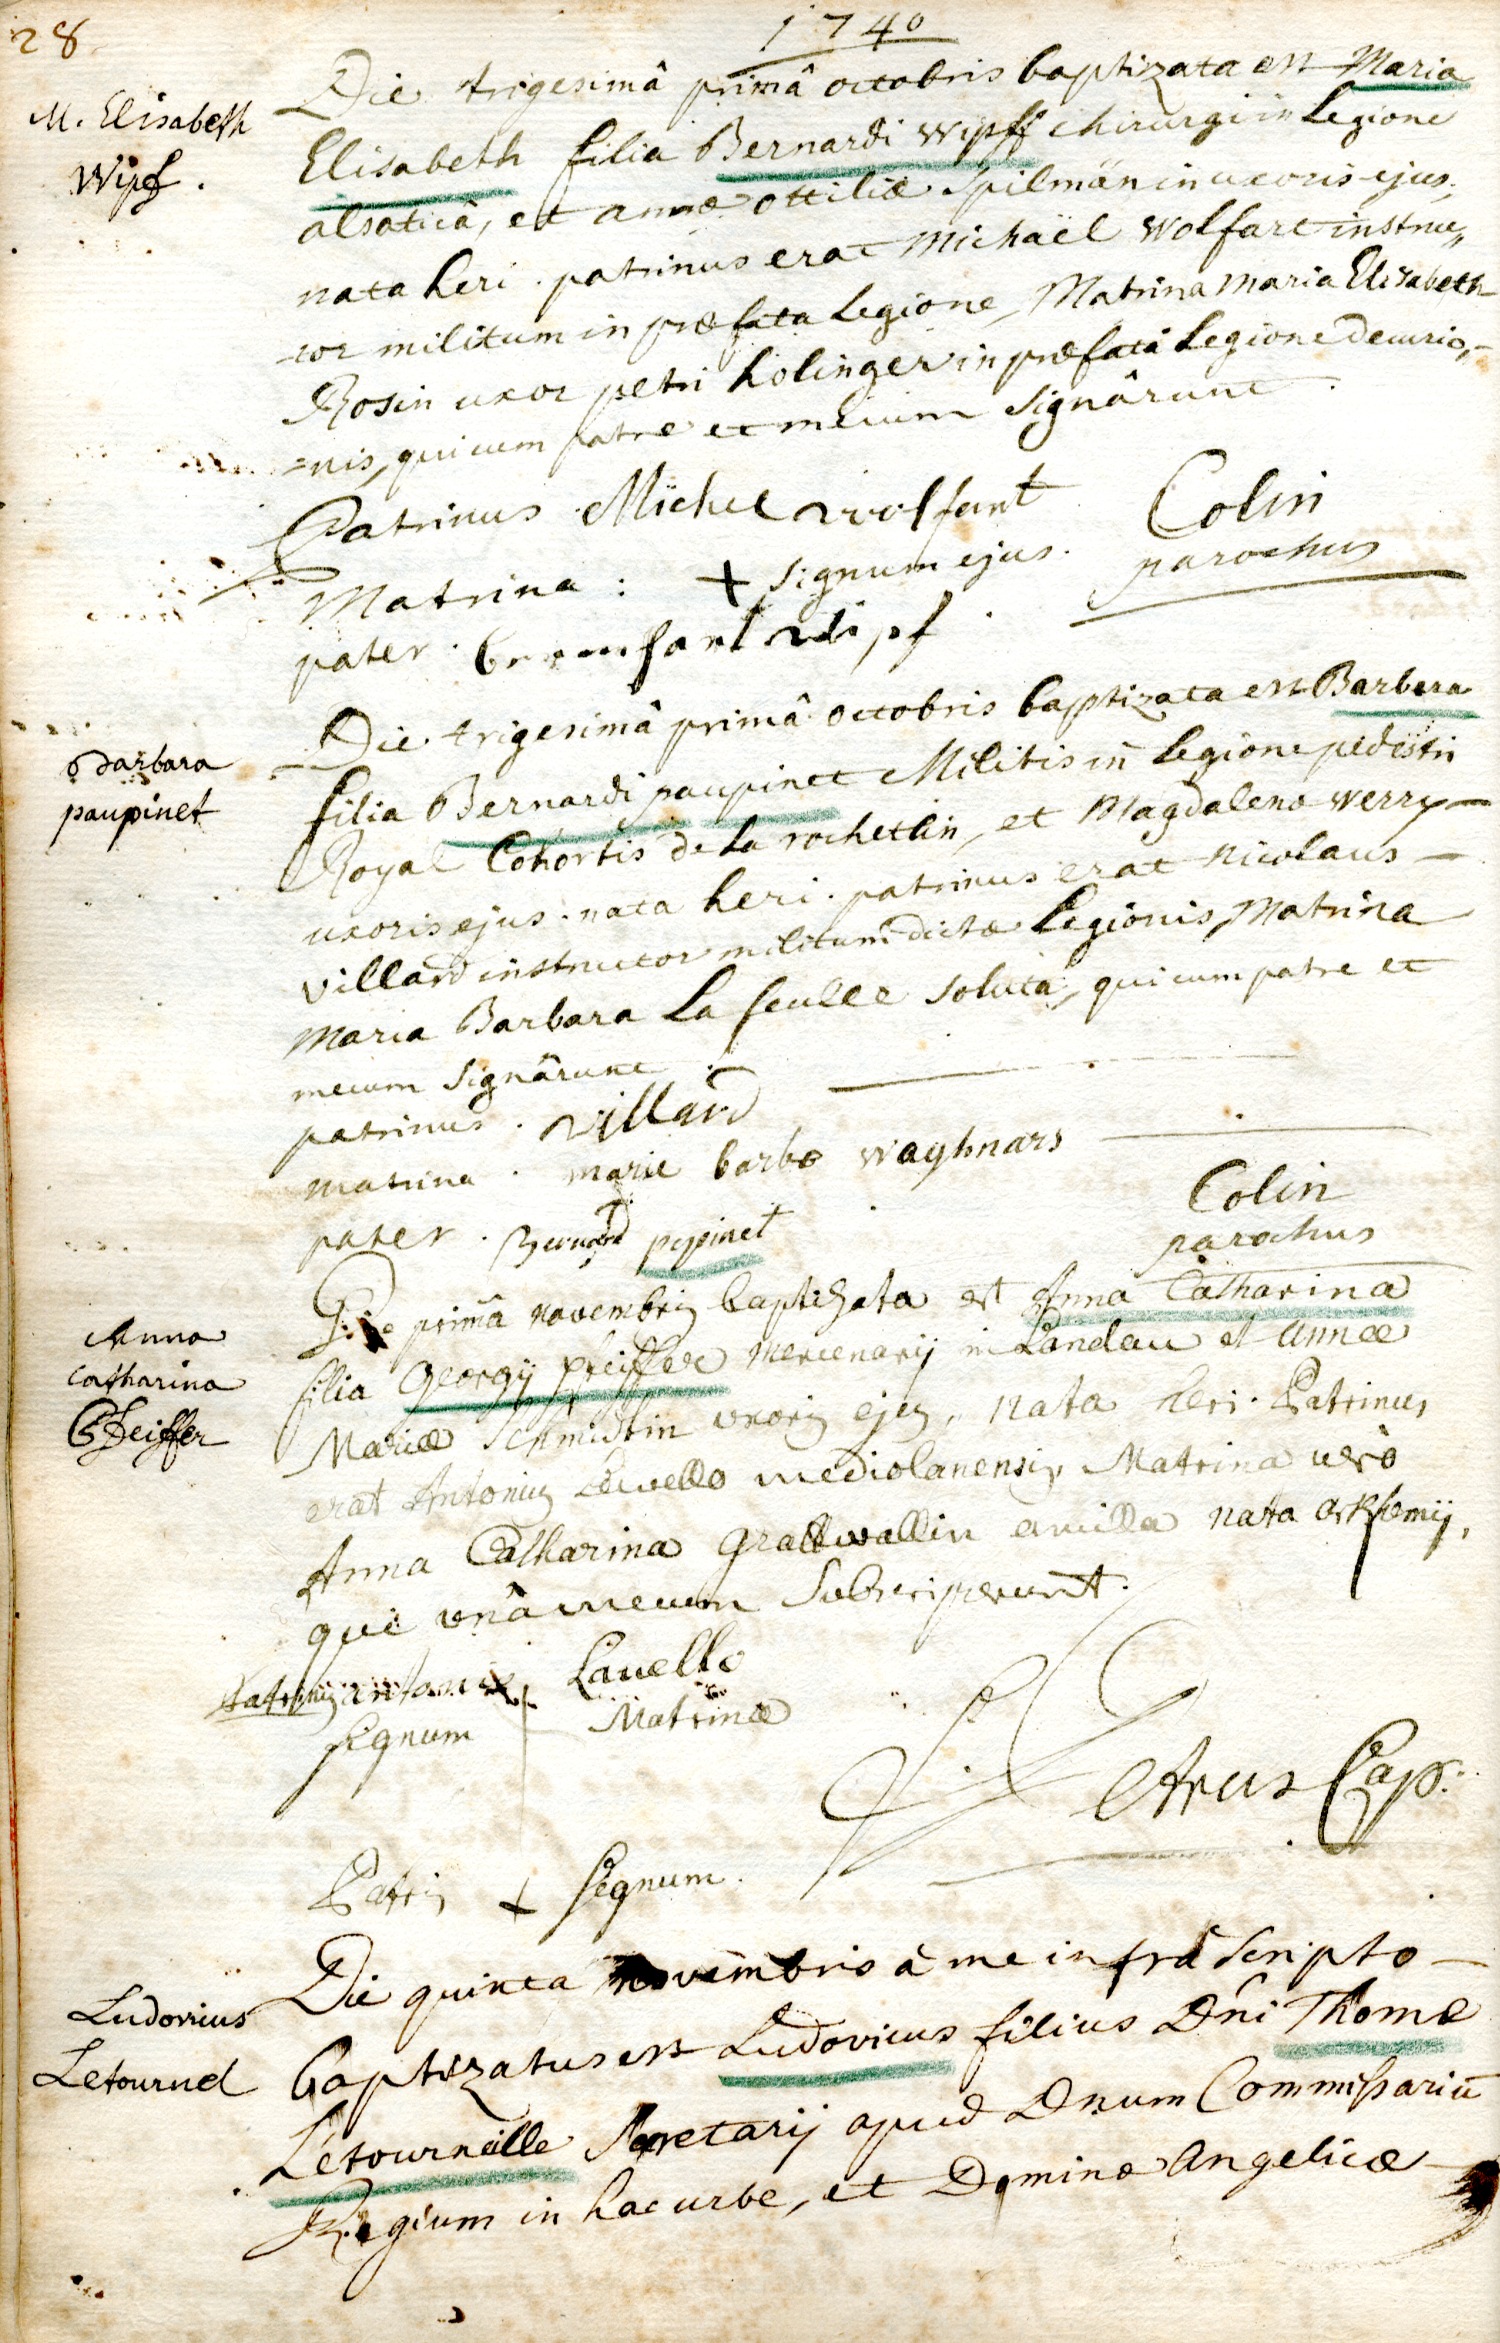 28
1740
M. Elisabeth
Wipf.
Die trigesimâ primâ octobris baptizata est Maria
Elisabeth filia Bernardi Wipff chirurgi in Legione
alsaticâ, et annæ ottiliæ Spilmänin uxoris ejus,
nata heri. patrinus erat Michaël Wolfart instruc„
tor militum in præfata Legione, Matrina Maria Elisabeth
Rosin uxor petri holinger in præfatâ Legione decurio„
=nis, qui cum patre et mecum signârunt.
Patrinus Michel wolfart
Colin
parochus
Matrina: + signum ejus.
pater. wipf
Barbara
paupinet
Die trigesimâ primâ octobris baptizata est Barbara
filia Bernardi paupinet Militis in Legione pedestri
Royal Cohortis de La rochettin, et Magdalenæ Werry
uxoris ejus. nata heri. patrinus erat Nicolaus
villard instructor militum dictæ Legionis, Matrina
Maria Barbara La feulle soluta, qui cum patre et
mecum signârunt.
patrinus. villard
matrina. marie barbe waghnars
pater. Bernard pepinet
Colin
parochus
Anna
Catharina
Pfeiffer
Die primâ novembris baptizata est Anna Catharina
filia Georgij Pfeiffer Mercenarij in Landau et Annæ
Mariæ Schmidtin uxoris ejus, nata heri. Patrinus
erat Antonius Lavello mediolanensis, Matrina verò
Anna Catharina Grallwallin ancilla nata
qui unâ mecum subscripserunt.
Patrinus antonio Lavello
signum + Matrinæ
Petrus Cap:
Patris + signum.
Ludovicus
Letournel
Die quinta novembris à me infrà scripto
baptizatus est Ludovicus filius Dñi Thomæ
Letourneille Secretarij apud Dnum Commissariũ
Regium in hac urbe, et Dominæ Angelicæ